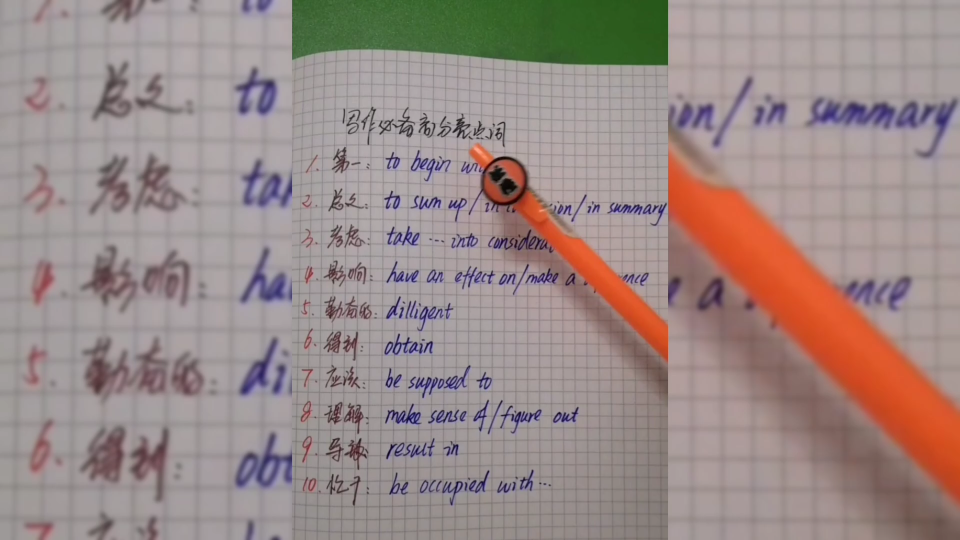 写作必备高分亮点词
1. 第一: to begin wi
2. 总之: to sum up/in ion/in summary
3. 考虑: take … into considera
4. 影响: have an effect on/make a ence
5. 勤奋的: dilligent
6. 得到: obtain
7. 应该: be supposed to
8. 理解: make sense of/figure out
9. 导致: result in
10. 忙于: be occupied with…